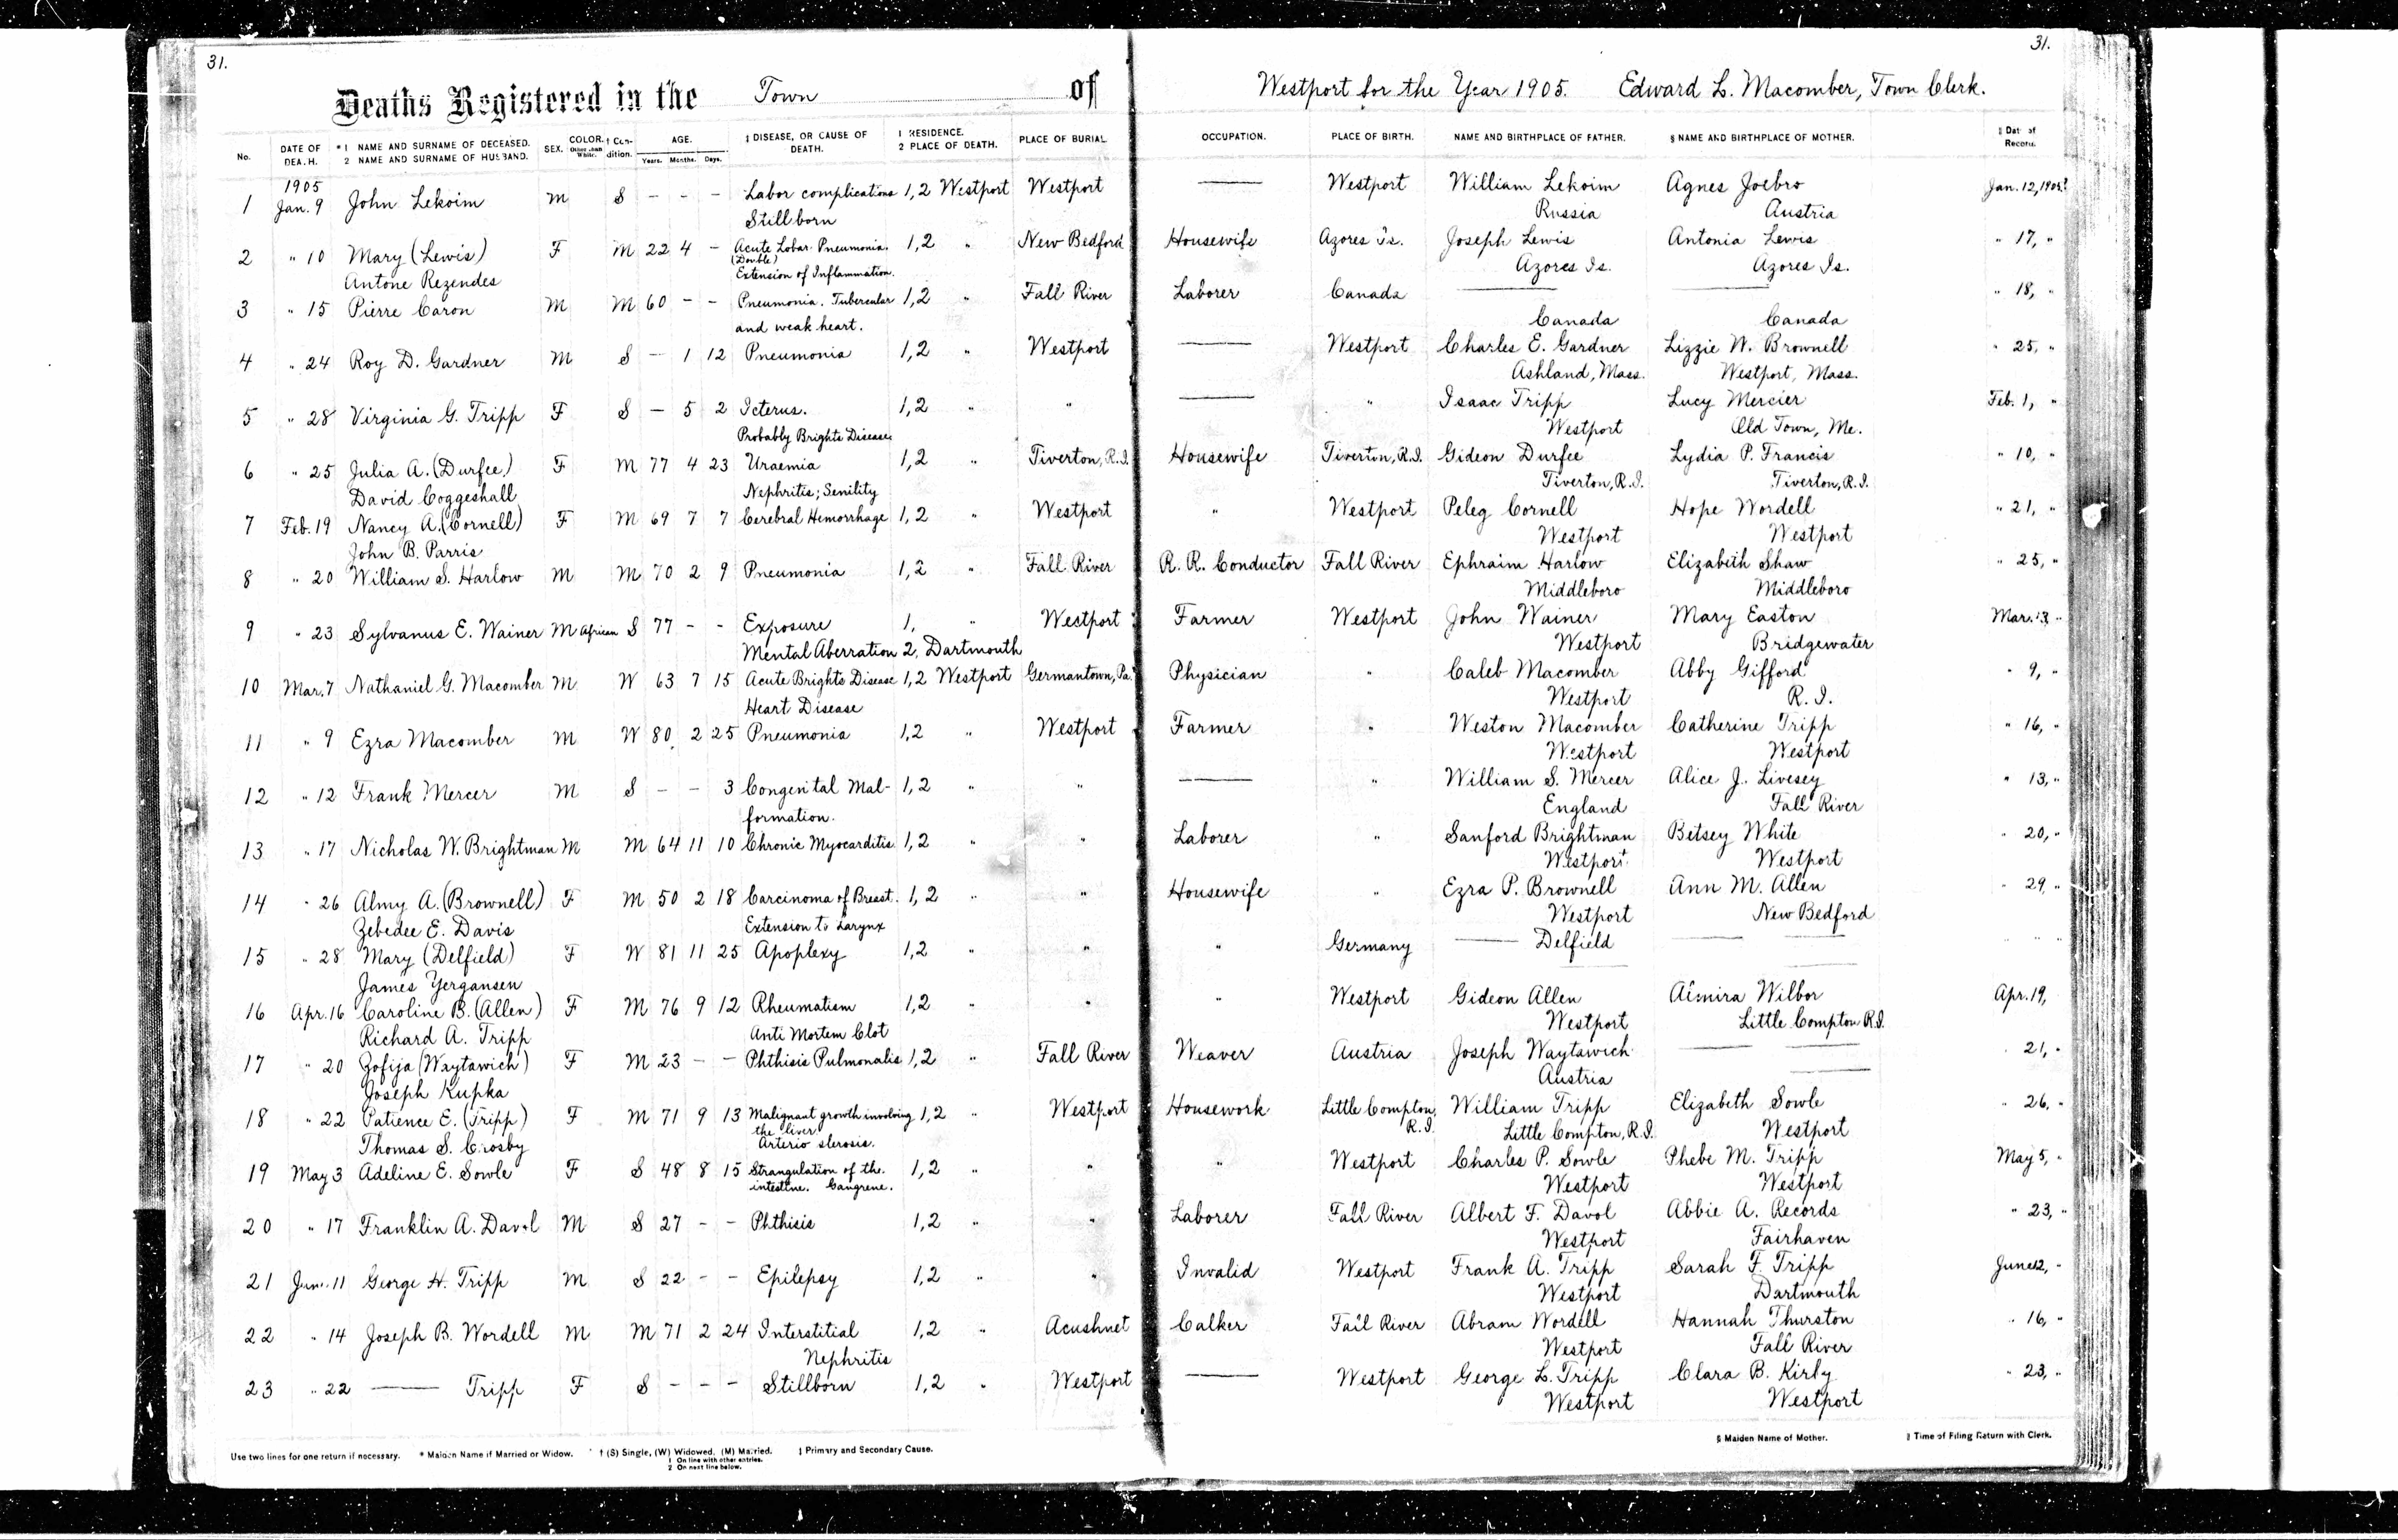 31.
31.
Deaths Registered in the Town of Westport for the Year 1905. Edward L. Macomber, Town Clerk.
No. DATE OF DEATH. *1 NAME AND SURNAME OF DECEASED. 2 NAME AND SURNAME OF HUSBAND. SEX. COLOR. Other than White. † Condition. AGE. Years. Months. Days. ‡ DISEASE, OR CAUSE OF DEATH. 1 RESIDENCE. 2 PLACE OF DEATH. PLACE OF BURIAL OCCUPATION. PLACE OF BIRTH. NAME AND BIRTHPLACE OF FATHER. § NAME AND BIRTHPLACE OF MOTHER. ‖ Date of Record.
1905
1 Jan. 9 John Lekoim M S - - - Labor complications 1,2 Westport Westport — Westport William Lekoim Agnes Joebro Jan. 12, 1905.
Stillborn Russia Austria
2 " 10 Mary (Lewis) F M 22 4 - Acute Lobar Pneumonia. 1,2 " New Bedford Housewife Azores Is. Joseph Lewis Antonia Lewis " 17, "
(Double)
Antone Rezendes Extension of Inflammation. Azores Is. Azores Is.
3 " 15 Pierre Caron M M 60 - - Pneumonia. Tubercular 1,2 " Fall River Laborer Canada — — " 18, "
and weak heart. Canada Canada
4 " 24 Roy D. Gardner M S - 1 12 Pneumonia 1,2 " Westport — Westport Charles E. Gardner Lizzie W. Brownell " 25, "
Ashland, Mass. Westport, Mass.
5 " 28 Virginia G. Tripp F S - 5 2 Icterus. 1,2 " " — " Isaac Tripp Lucy Mercier Feb. 1, "
Probably Brights Disease Westport Old Town, Me.
6 " 25 Julia A. (Durfee) F M 77 4 23 Uraemia 1,2 " Tiverton, R.I. Housewife Tiverton, R.I. Gideon Durfee Lydia P. Francis " 10, "
David Coggeshall Nephritis; Senility Tiverton, R.I. Tiverton, R.I.
7 Feb. 19 Nancy A. (Cornell) F M 69 7 7 Cerebral Hemorrhage 1,2 " Westport " Westport Peleg Cornell Hope Wordell " 21, "
John B. Parris Westport Westport
8 " 20 William S. Harlow M M 70 2 9 Pneumonia 1,2 " Fall River R. R. Conductor Fall River Ephraim Harlow Elizabeth Shaw " 25, "
Middleboro Middleboro
9 " 23 Sylvanus E. Wainer M African S 77 - - Exposure 1, " Westport Farmer Westport John Wainer Mary Easton Mar. 13 "
Mental Aberration 2, Dartmouth Westport Bridgewater
10 Mar. 7 Nathaniel G. Macomber M W 63 7 15 Acute Brights Disease 1,2 Westport Germantown, Pa. Physician " Caleb Macomber Abby Gifford " 9, "
Heart Disease Westport R. I.
11 " 9 Ezra Macomber M W 80 2 25 Pneumonia 1,2 " Westport Farmer " Weston Macomber Catherine Tripp " 16, "
Westport Westport
12 " 12 Frank Mercer M S - - 3 Congenital Mal- 1,2 " " — " William S. Mercer Alice J. Livesey " 13, "
formation. England Fall River
13 " 17 Nicholas W. Brightman M M 64 11 10 Chronic Myocarditis 1,2 " " Laborer " Sanford Brightman Betsey White " 20, "
Westport Westport
14 " 26 Almy A. (Brownell) F M 50 2 18 Carcinoma of Breast. 1,2 " " Housewife " Ezra P. Brownell Ann M. Allen " 29, "
Zebedee E. Davis Extension to Larynx Westport New Bedford
15 " 28 Mary (Delfield) F W 81 11 25 Apoplexy 1,2 " " " Germany — Delfield — — " "
James Yergansen — —
16 Apr. 16 Caroline B. (Allen) F M 76 9 12 Rheumatism 1,2 " " " Westport Gideon Allen Almira Wilbor Apr. 19,
Richard A. Tripp Anti Mortem Clot Westport Little Compton R.I.
17 " 20 Zofija (Waytawich) F M 23 - - Phthisis Pulmonalis 1,2 " Fall River Weaver Austria Joseph Waytawich — — " 21, "
Joseph Kupka Austria —
18 " 22 Patience E. (Tripp) F M 71 9 13 Malignant growth involving 1,2 " Westport Housework Little Compton, William Tripp Elizabeth Sowle " 26, "
the liver. R.I.
Thomas S. Crosby Arterio slerosis. Little Compton, R.I. Westport
19 May 3 Adeline E. Sowle F S 48 8 15 Strangulation of the 1,2 " " " Westport Charles P. Sowle Phebe M. Tripp May 5, "
intestine. Gangrene. Westport Westport
20 " 17 Franklin A. Davol M S 27 - - Phthisis 1,2 " " Laborer Fall River Albert F. Davol Abbie A. Records " 23, "
Westport Fairhaven
21 June 11 George H. Tripp M S 22 - - Epilepsy 1,2 " " Invalid Westport Frank A. Tripp Sarah F. Tripp June 12, "
Westport Dartmouth
22 " 14 Joseph B. Wordell M M 71 2 24 Interstitial 1,2 " Acushnet Calker Fall River Abram Wordell Hannah Thurston " 16, "
Nephritis Westport Fall River
23 " 22 — Tripp F S - - - Stillborn 1,2 " Westport — Westport George L. Tripp Clara B. Kirby " 23, "
Westport Westport
Use two lines for one return if necessary. * Maiden Name if Married or Widow. † (S) Single, (W) Widowed, (M) Married. ‡ Primary and Secondary Cause. § Maiden Name of Mother. ‖ Time of Filing Return with Clerk.
1 On line with other entries.
2 On next line below.